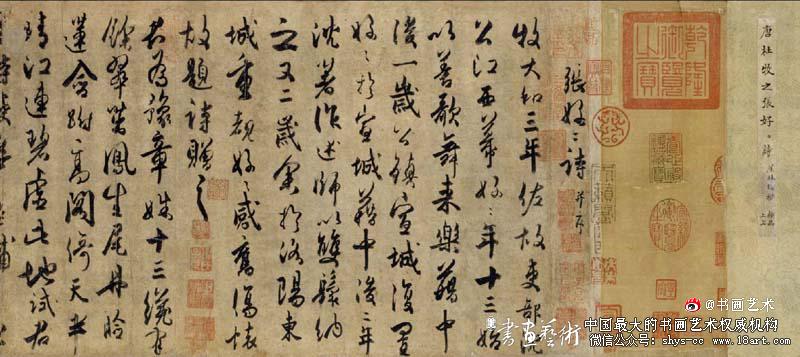 唐杜牧之張好〻詩
乾隆御覽之寶
張好〻詩 并序
牧大和三年佐故吏部沈
公江西幕好〻年十三始
以善歌舞來樂籍中
後一歲公鎮宣城復置
好〻於宣城籍中後二年
沈著作述師以雙鬟納
之又二歲余於洛陽東
城重覩好〻感舊傷懷
故題詩贈之
君為豫章姝十三纔有
餘翠茁鳳生尾丹臉
蓮含跗高閣倚天半
晴江連碧虛此地試君
書畫藝術
@书画艺术
中国最大的书画艺术权威机构
微信公众号: shys-cc www.18art.com